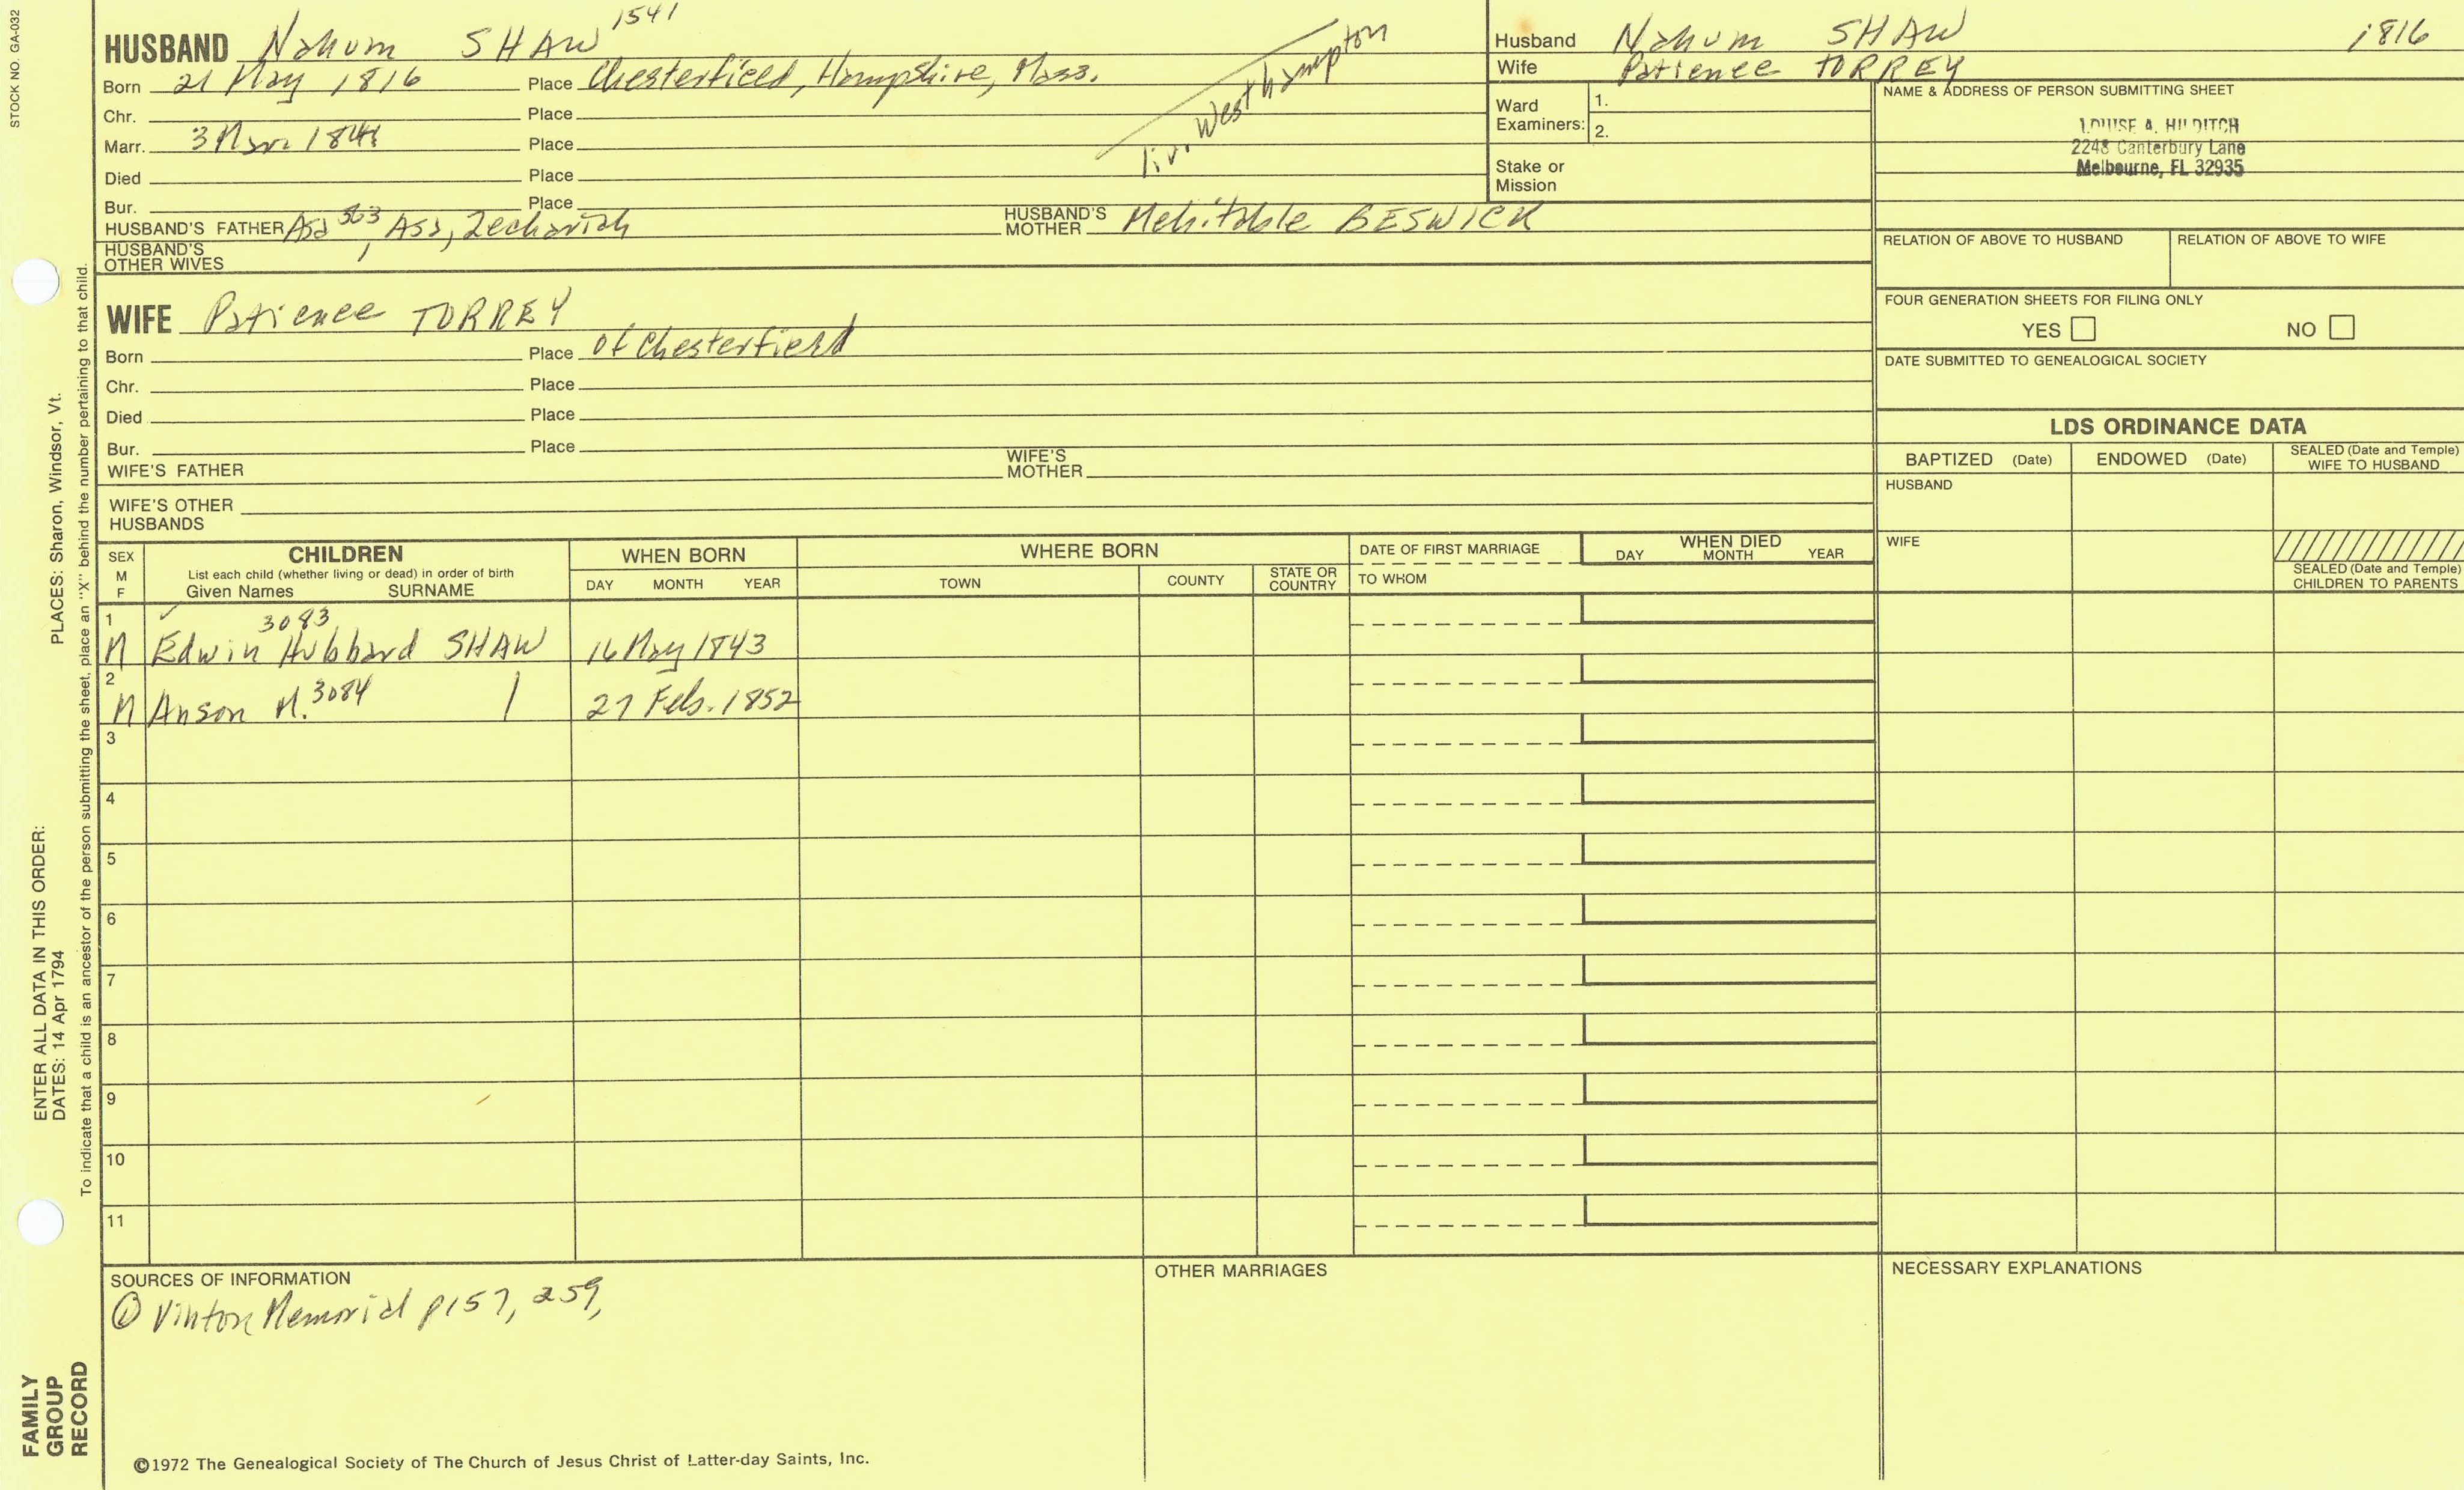 STOCK NO. GA-032
HUSBAND Nahum SHAW 1541
Born 21 May 1816 Place Chesterfield, Hampshire, Mass.
Chr. Place
Marr. 1841 Place
Died Place
Bur. Place
liv. Westhampton
HUSBAND'S FATHER Asa 563, Asa, Zechariah HUSBAND'S MOTHER Mehitable BESWICK
HUSBAND'S OTHER WIVES
WIFE Patience TORREY
Born Place of Chesterfield
Chr. Place
Died Place
Bur. Place
WIFE'S FATHER WIFE'S MOTHER
WIFE'S OTHER HUSBANDS
Husband Nahum SHAW 1816
Wife Patience TORREY
Ward Examiners: 1.
2.
Stake or Mission
NAME & ADDRESS OF PERSON SUBMITTING SHEET
LOUISE A. HILDITCH
2248 Canterbury Lane
Melbourne, FL 32935
RELATION OF ABOVE TO HUSBAND RELATION OF ABOVE TO WIFE
FOUR GENERATION SHEETS FOR FILING ONLY
YES NO
DATE SUBMITTED TO GENEALOGICAL SOCIETY
LDS ORDINANCE DATA
BAPTIZED (Date) ENDOWED (Date) SEALED (Date and Temple) WIFE TO HUSBAND
HUSBAND
WIFE
SEALED (Date and Temple) CHILDREN TO PARENTS
SEX M F
CHILDREN
List each child (whether living or dead) in order of birth
Given Names SURNAME
WHEN BORN
DAY MONTH YEAR
WHERE BORN
TOWN COUNTY STATE OR COUNTRY
DATE OF FIRST MARRIAGE
TO WHOM
WHEN DIED
DAY MONTH YEAR
1 3083
M Edwin Hubbard SHAW 16 May 1843
2
M Anson M. 3084 27 Feb. 1852
3
4
5
6
7
8
9
10
11
SOURCES OF INFORMATION
① Vinton Memorial p157, 259,
OTHER MARRIAGES
NECESSARY EXPLANATIONS
©1972 The Genealogical Society of The Church of Jesus Christ of Latter-day Saints, Inc.
FAMILY
GROUP
RECORD
ENTER ALL DATA IN THIS ORDER:
DATES: 14 Apr 1794
PLACES: Sharon, Windsor, Vt.
To indicate that a child is an ancestor of the person submitting the sheet, place an "X" behind the number pertaining to that child.